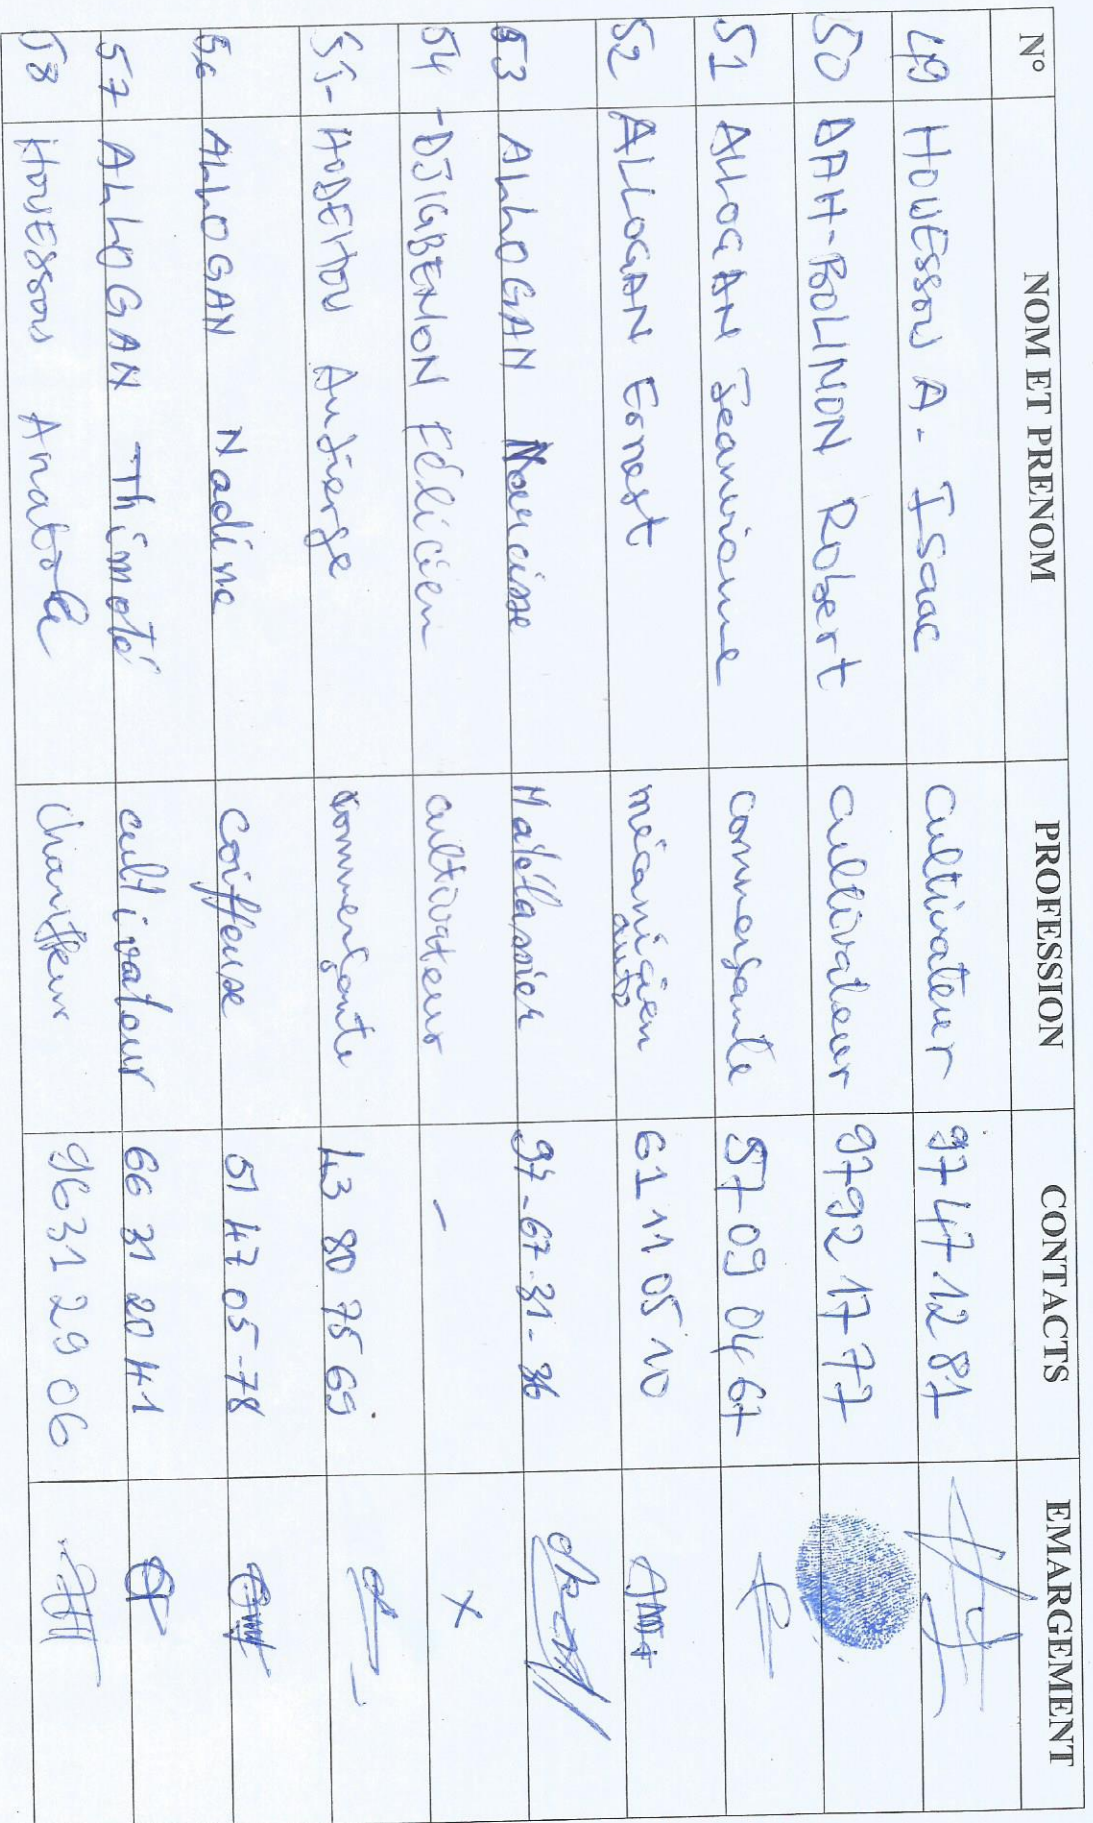 N° NOM ET PRENOM PROFESSION CONTACTS EMARGEMENT
49 HOUESSOU A. Isaac Cultivateur 97 47 12 81
50 DAH-BOLINON Robert Cultivateur 97 92 17 77
51 ALLOGAN Jeanvionne commersante 57 09 04 67
52 ALLOGAN Ernest mécanicien auto 61 11 05 10
53 ALLOGAN Narcisse Matélassier 97-67-31-36
54 - DJIGBENON Félicien cultivateur - x
55 - HODEHOU Antierge commerçante 43 80 75 69
56 ALLOGAN Nadine Coiffeuse 51 47 05 78
57 ALLOGAN Thimoté cultivateur 66 31 20 41
58 HOUESSOU Anatole Chauffeur 96 31 29 06